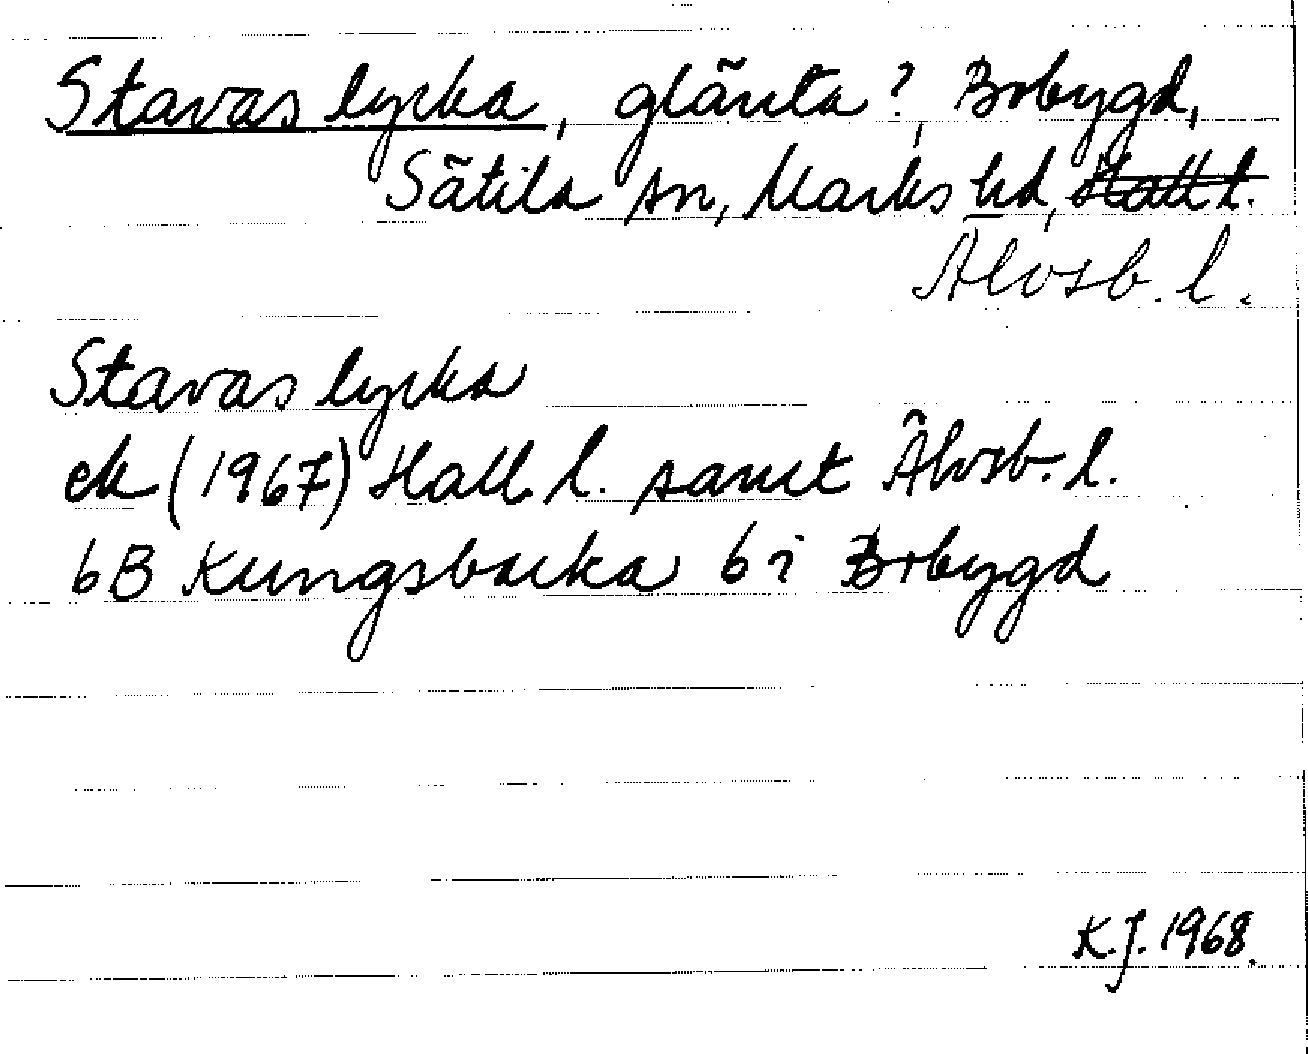 Stavas lycka, glänta?, Bobygd,
Sätila sn, Marks hd, Hall l.
Älvsb. l.
Stavas lycka
ek (1967) Hall. l. samt Älvsb. l.
6B Kungsbacka 6 i Bobygd
K.J. 1968.